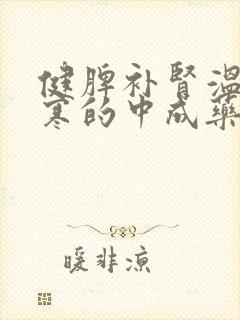 健脾补肾温
寒的中成药
暖非凉